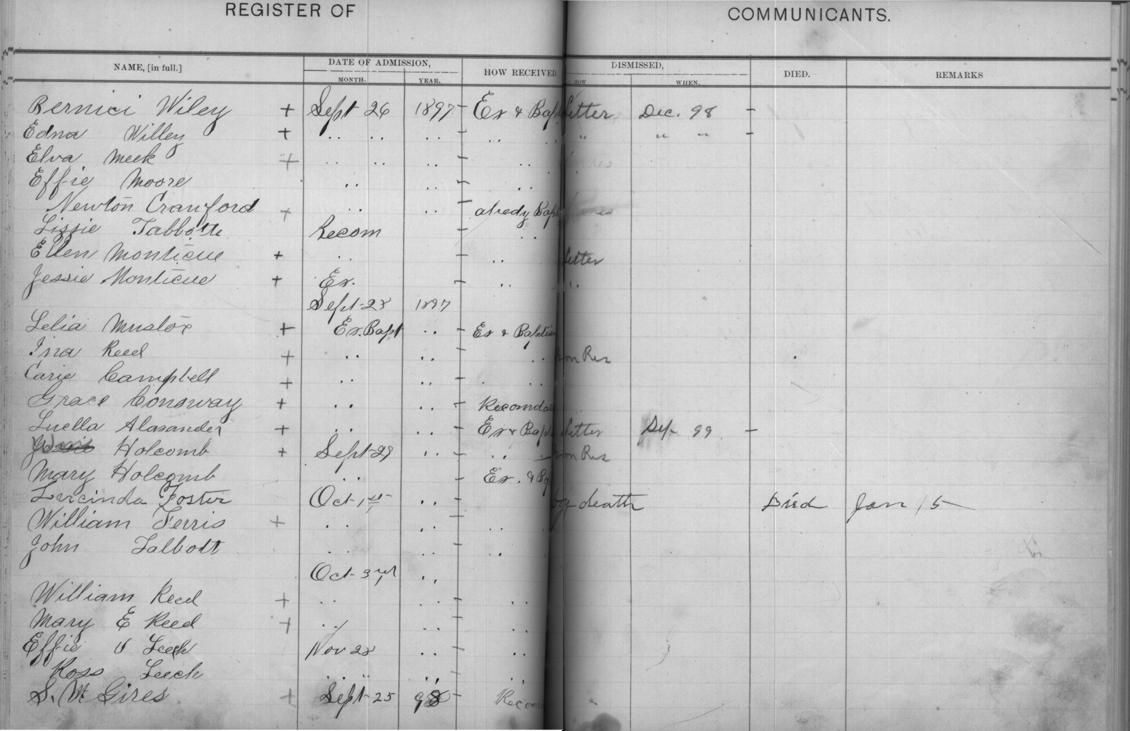 REGISTER OF COMMUNICANTS.
NAME, [in full.] DATE OF ADMISSION, HOW RECEIVED DISMISSED, DIED. REMARKS
MONTH. YEAR. HOW WHEN.
Bernici Wiley + Sept 26 1897 - Ex & Bap letter Dec. 98 -
Edna Willey + .. .. .. - .. " " " -
Elva Meek + .. .. .. - ..
Effie Moore .. .. - ..
Newton Crawford + .. .. - alredy Bap
Lizzie Talbott Recom - ..
Ellen Monticue + .. .. letter
Jessie Monticue + Ex. .. "
Sept-28 1897
Lelia + Ex. Bapt .. - Ex & Baptis
Ina Reed + .. .. - .. non Res
Carie Campbell + .. .. - . ..
Grace Conoway + .. .. - Recomda
Luella Alaxander + .. .. - Ex & Bap letter 99 -
Holcomb + Sept 29 .. - .. non Res
Mary Holcomb .. .. Ex. & B
Lucinda Foster Oct-1st .. - by death Died Jan 15
William Ferris + .. .. - ..
John Talbott .. .. - .
Oct-3rd ..
William Reed + .. .. - ..
Mary E Reed + .. .. ..
Effie Leech Nov 28 .. ..
Ross Leech .. .. .. ..
+ Sept-25 98 -